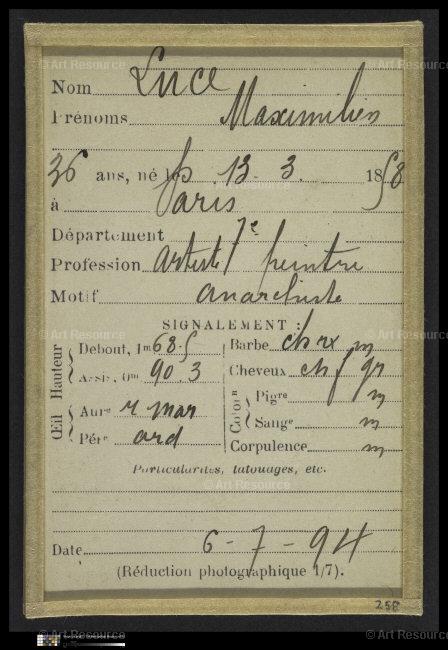 Nom Luce
Prénoms Maximilien
36 ans, né le 13. 3. 1858
à Paris 7e
Département
Profession artiste peintre
Motif anarchiste
SIGNALEMENT :
Hauteur
Debout, 1m 68.5
Assis, 0m 90.3
Œil
Aure r mar
Pére ard
Barbe ch rx m
Cheveux ch f gr
Color
Pigre m
Sange m
Corpulence m
Particularités, tatouages, etc.
Date 6 - 7 - 94
(Réduction photographique 1/7).
258
Art Resource